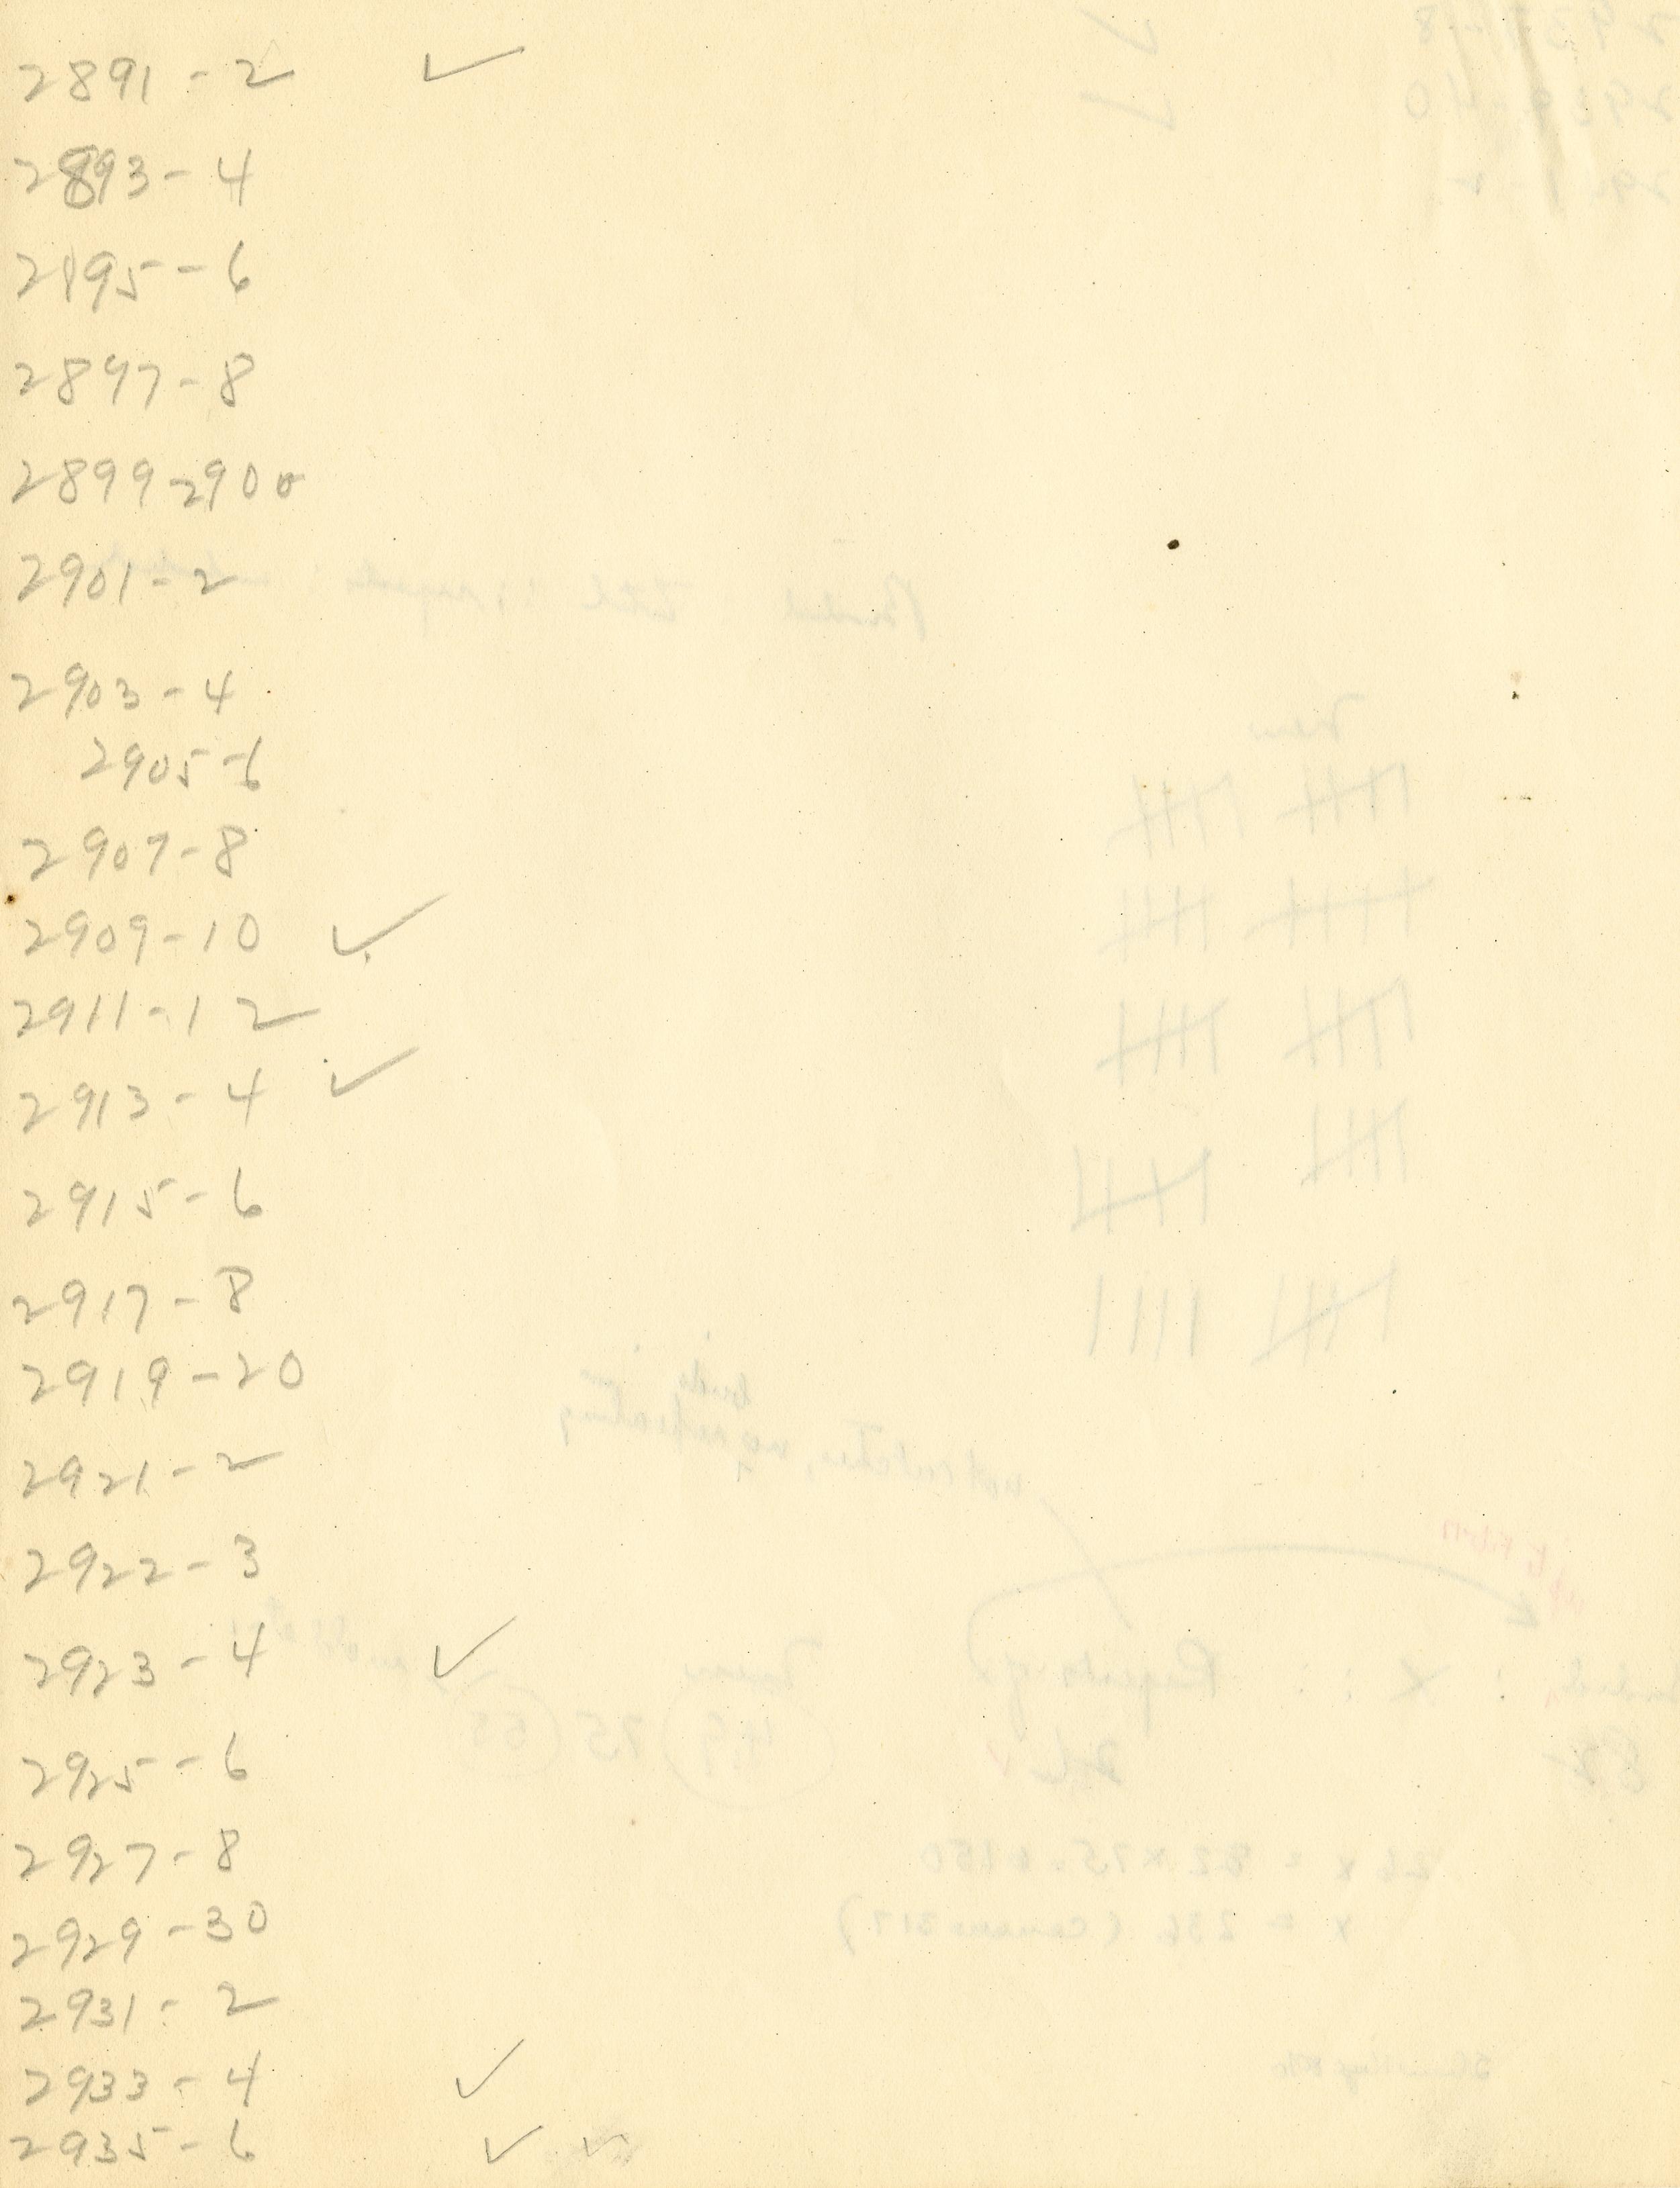 2891-2 ✓
2893-4
2895-6
2897-8
2899-2900
2901-2
2903-4
2905-6
2907-8
2909-10 ✓
2911-12
2913-4 ✓
2915-6
2917-8
2919-20
2921-2
2922-3
2923-4 ✓
2925-6
2927-8
2929-30
2931-2
2933-4 ✓
2935-6 ✓ ✓